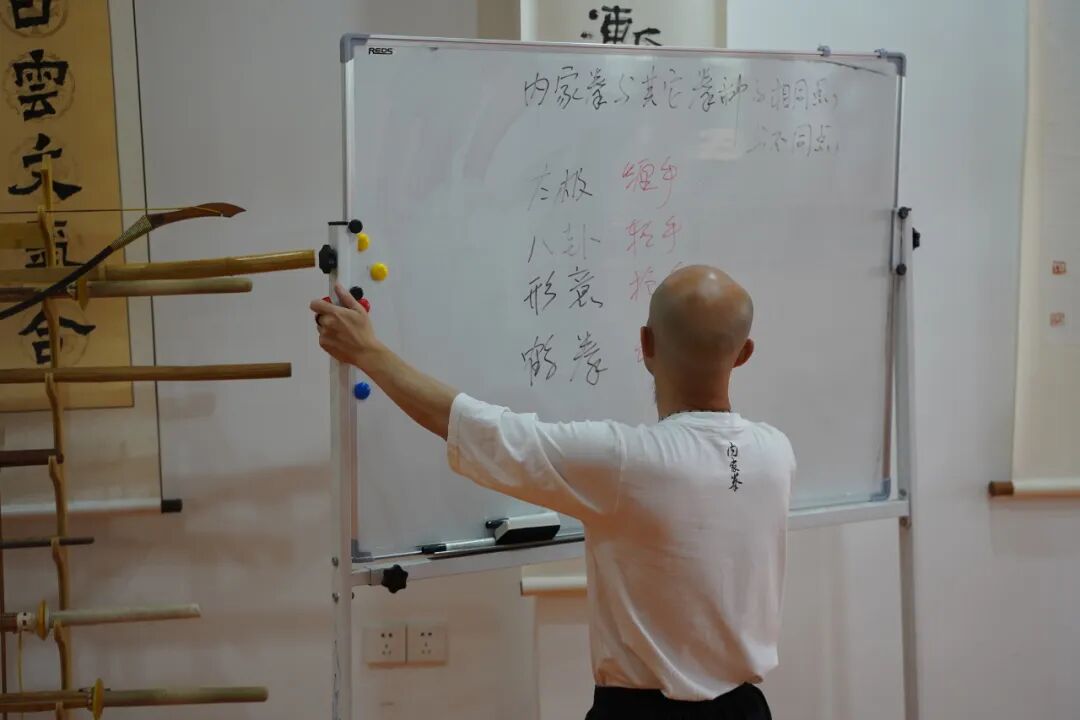 REDS
内家拳与其它拳种与相同点,
与不同点,
太极 缠手
八卦 轻手
形意
鹤拳
内家拳
雲文氣合